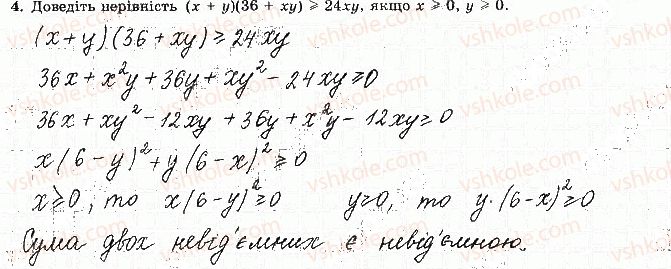 4. Доведіть нерівність (x + y)(36 + xy) ⩾ 24xy, якщо x ⩾ 0, y ⩾ 0.
(x+y)(36+xy)⩾24xy
36x+x²y+36y+xy²-24xy⩾0
36x+xy²-12xy+36y+x²y-12xy⩾0
x(6-y)²+y(6-x)²⩾0
x⩾0, то x(6-y)²⩾0 y⩾0, то y·(6-x)²⩾0
Сума двох невід'ємних є невід'ємною.
vshkole.com